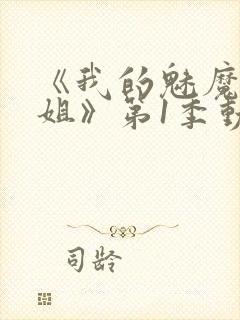 《我的魅魔
姐》第1季動
司龄